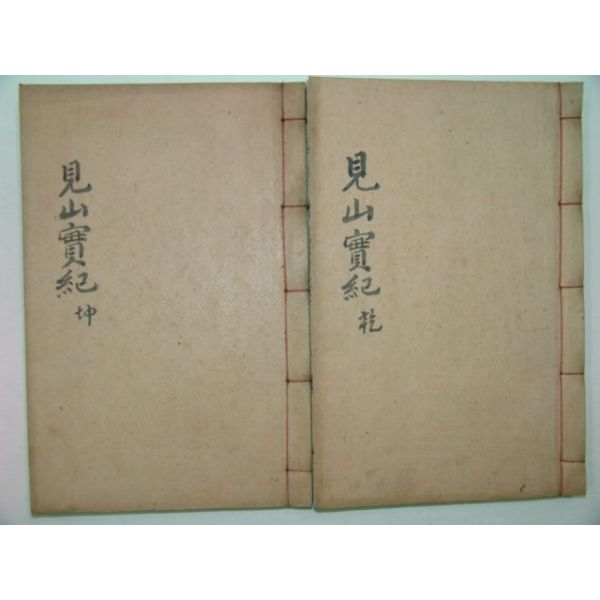 見山實紀
乾
見山實紀
坤